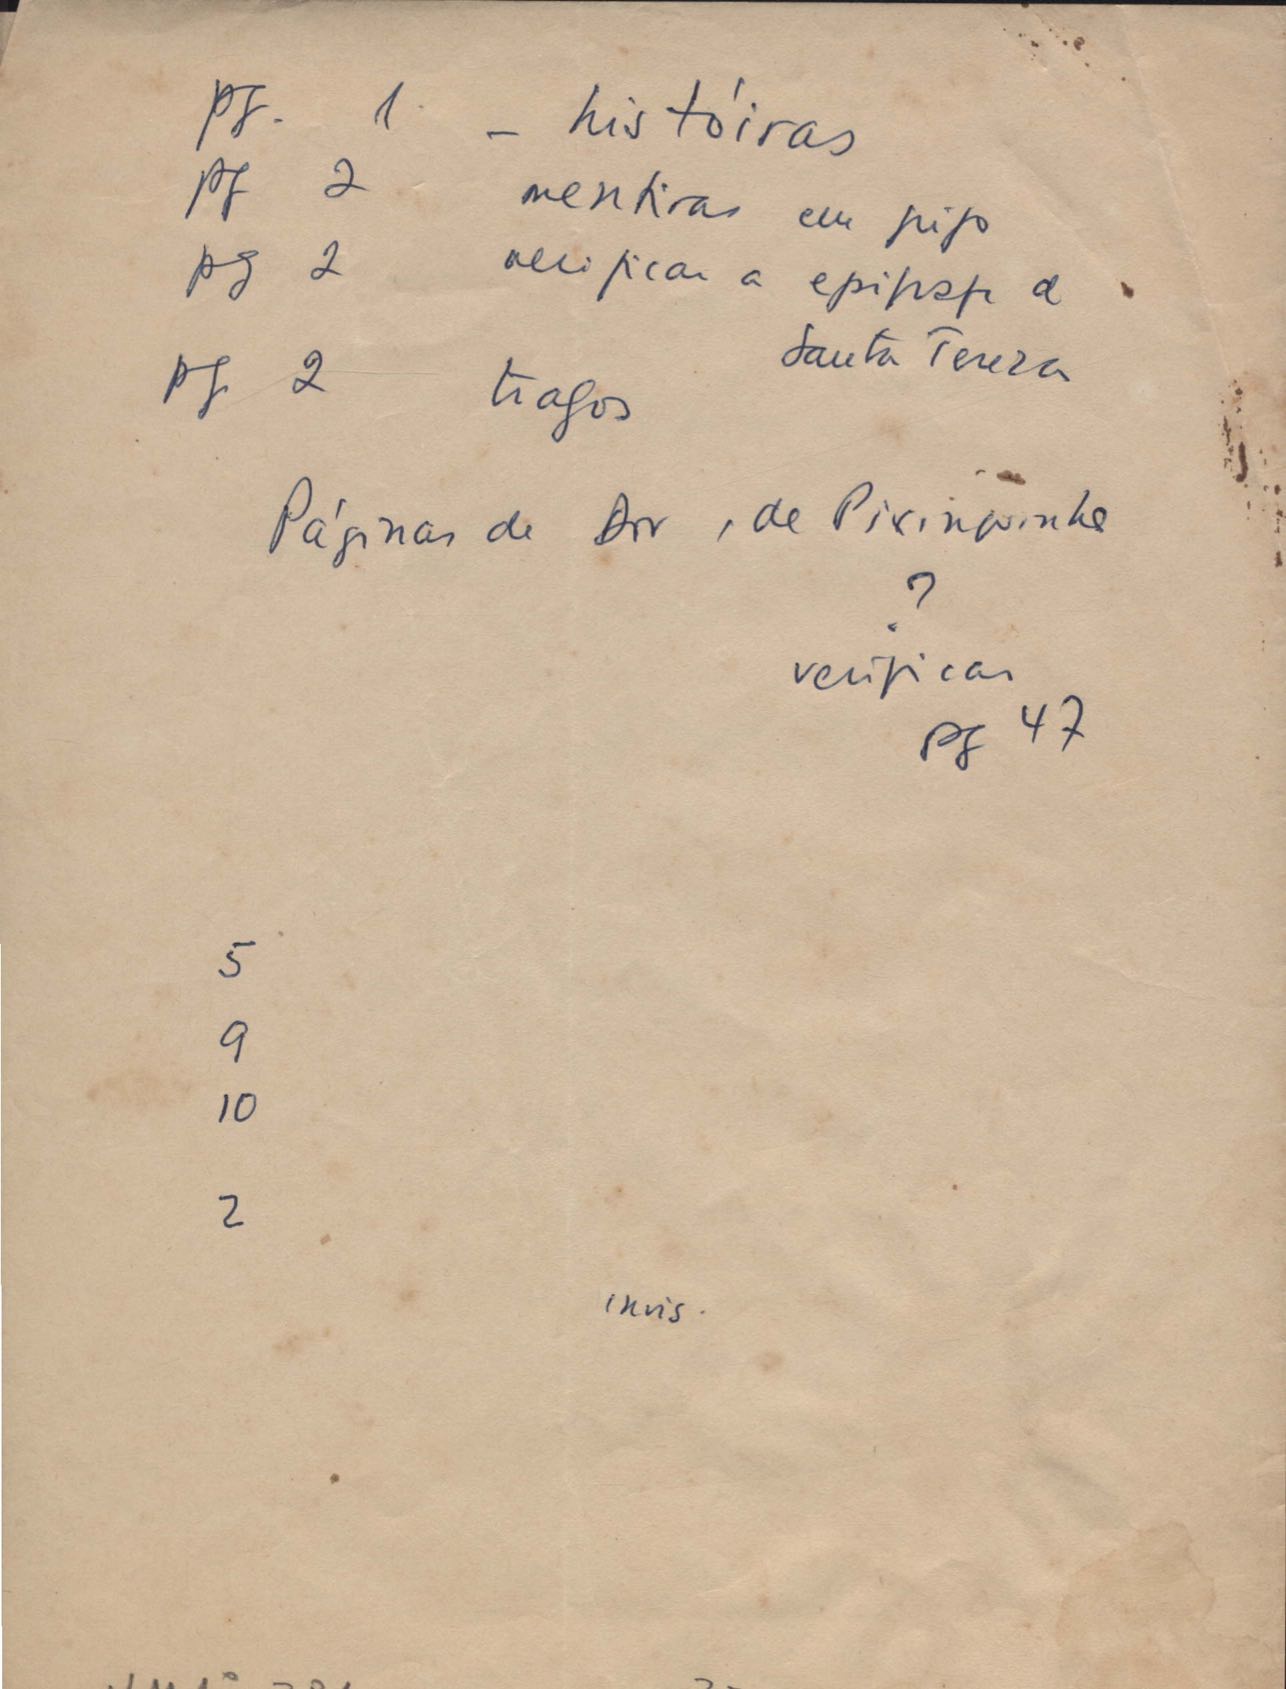 pg. 1 - históiras
pg 2 mentiras em grifo
pg 2 verificar a epígrafe d
Santa Tereza
pg 2 tragos
Páginas de Dor, de Pixinguinha
?
verificar
pg 47
5
9
10
2
invis.